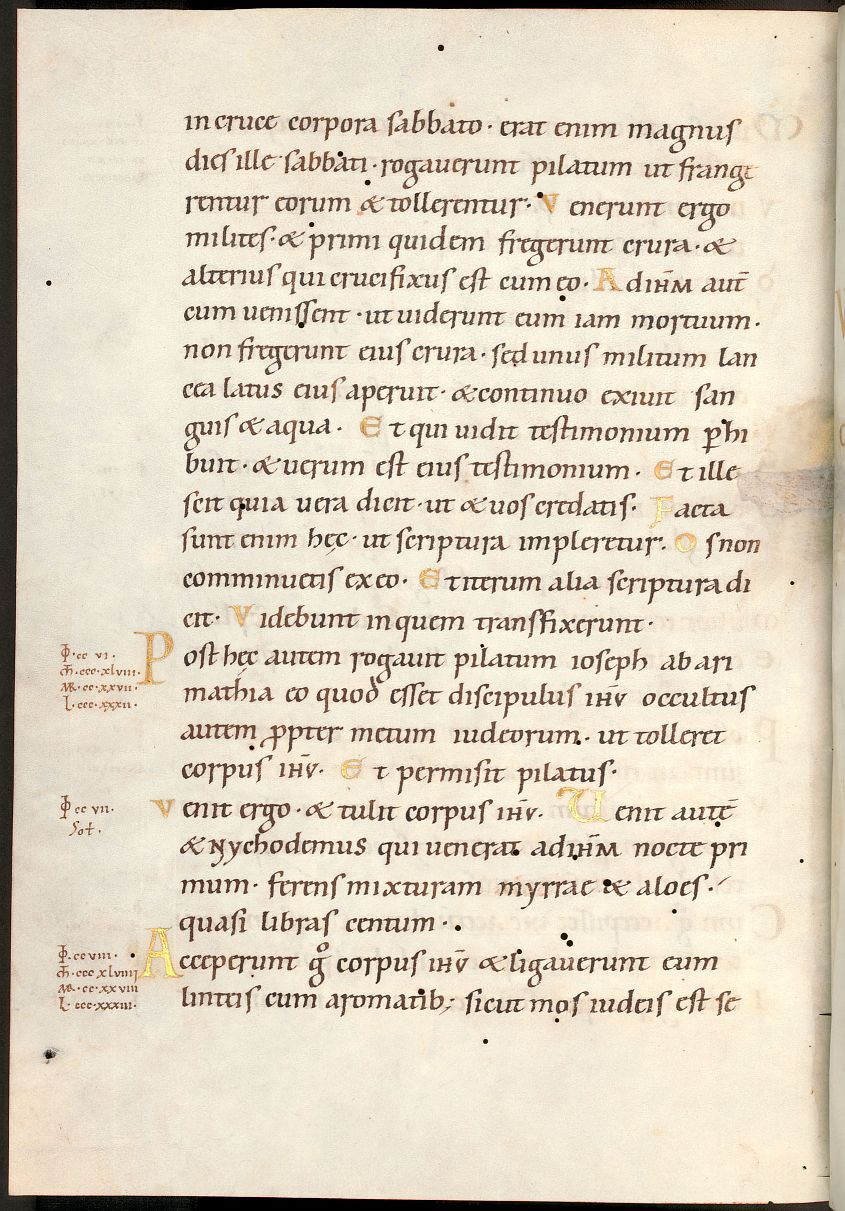 in cruce corpora sabbato · erat enim magnus
dies ille sabbati · rogauerunt pilatum ut frange
rentur eorum & tollerentur · Venerunt ergo
milites · & primi quidem fregerunt crura · &
alterius qui crucifixus est cum eo · Ad ihm̄ aut̄
cum uenissent · ut uiderunt eum iam mortuum ·
non fregerunt eius crura · sed unus militum lan
cea latus eius aperuit · & continuo exiuit san
guis & aqua · Et qui uidit testimonium ꝑhi
buit · & uerum est eius testimonium · Et ille
scit quia uera dicit · ut & uos credatis · Facta
sunt enim hęc · ut scriptura impleretur. Os non
comminuetis ex eo · Et iterum alia scriptura di
cit · Videbunt in quem transfixerunt ·
Post hęc autem rogauit pilatum ioseph ab ari
mathia eo quod esset discipulus ihū occultus
autem ꝓpter metum iudeorum · ut tolleret
corpus ihū · Et permisit pilatus ·
Venit ergo · & tulit corpus ihū · Uenit autē
& Nychodemus qui uenerat ad ihm̄ nocte pri
mum · ferens mixturam myrrae & aloes ·
quasi libras centum ·
Acceperunt gͦ corpus ihū & ligauerunt eum
linteis cum aromatib; sicut mos iudeis est se
ꟾo · cc vi ·
m̄ · ccc · xlviii ·
MR · cc · xxvii ·
l · ccc · xxxii ·
ꟾo cc vii ·
Sol ·
ꟾo · cc viii ·
m̄ · ccc xlviiii
MR · cc · xxviii
l · ccc · xxxiii ·